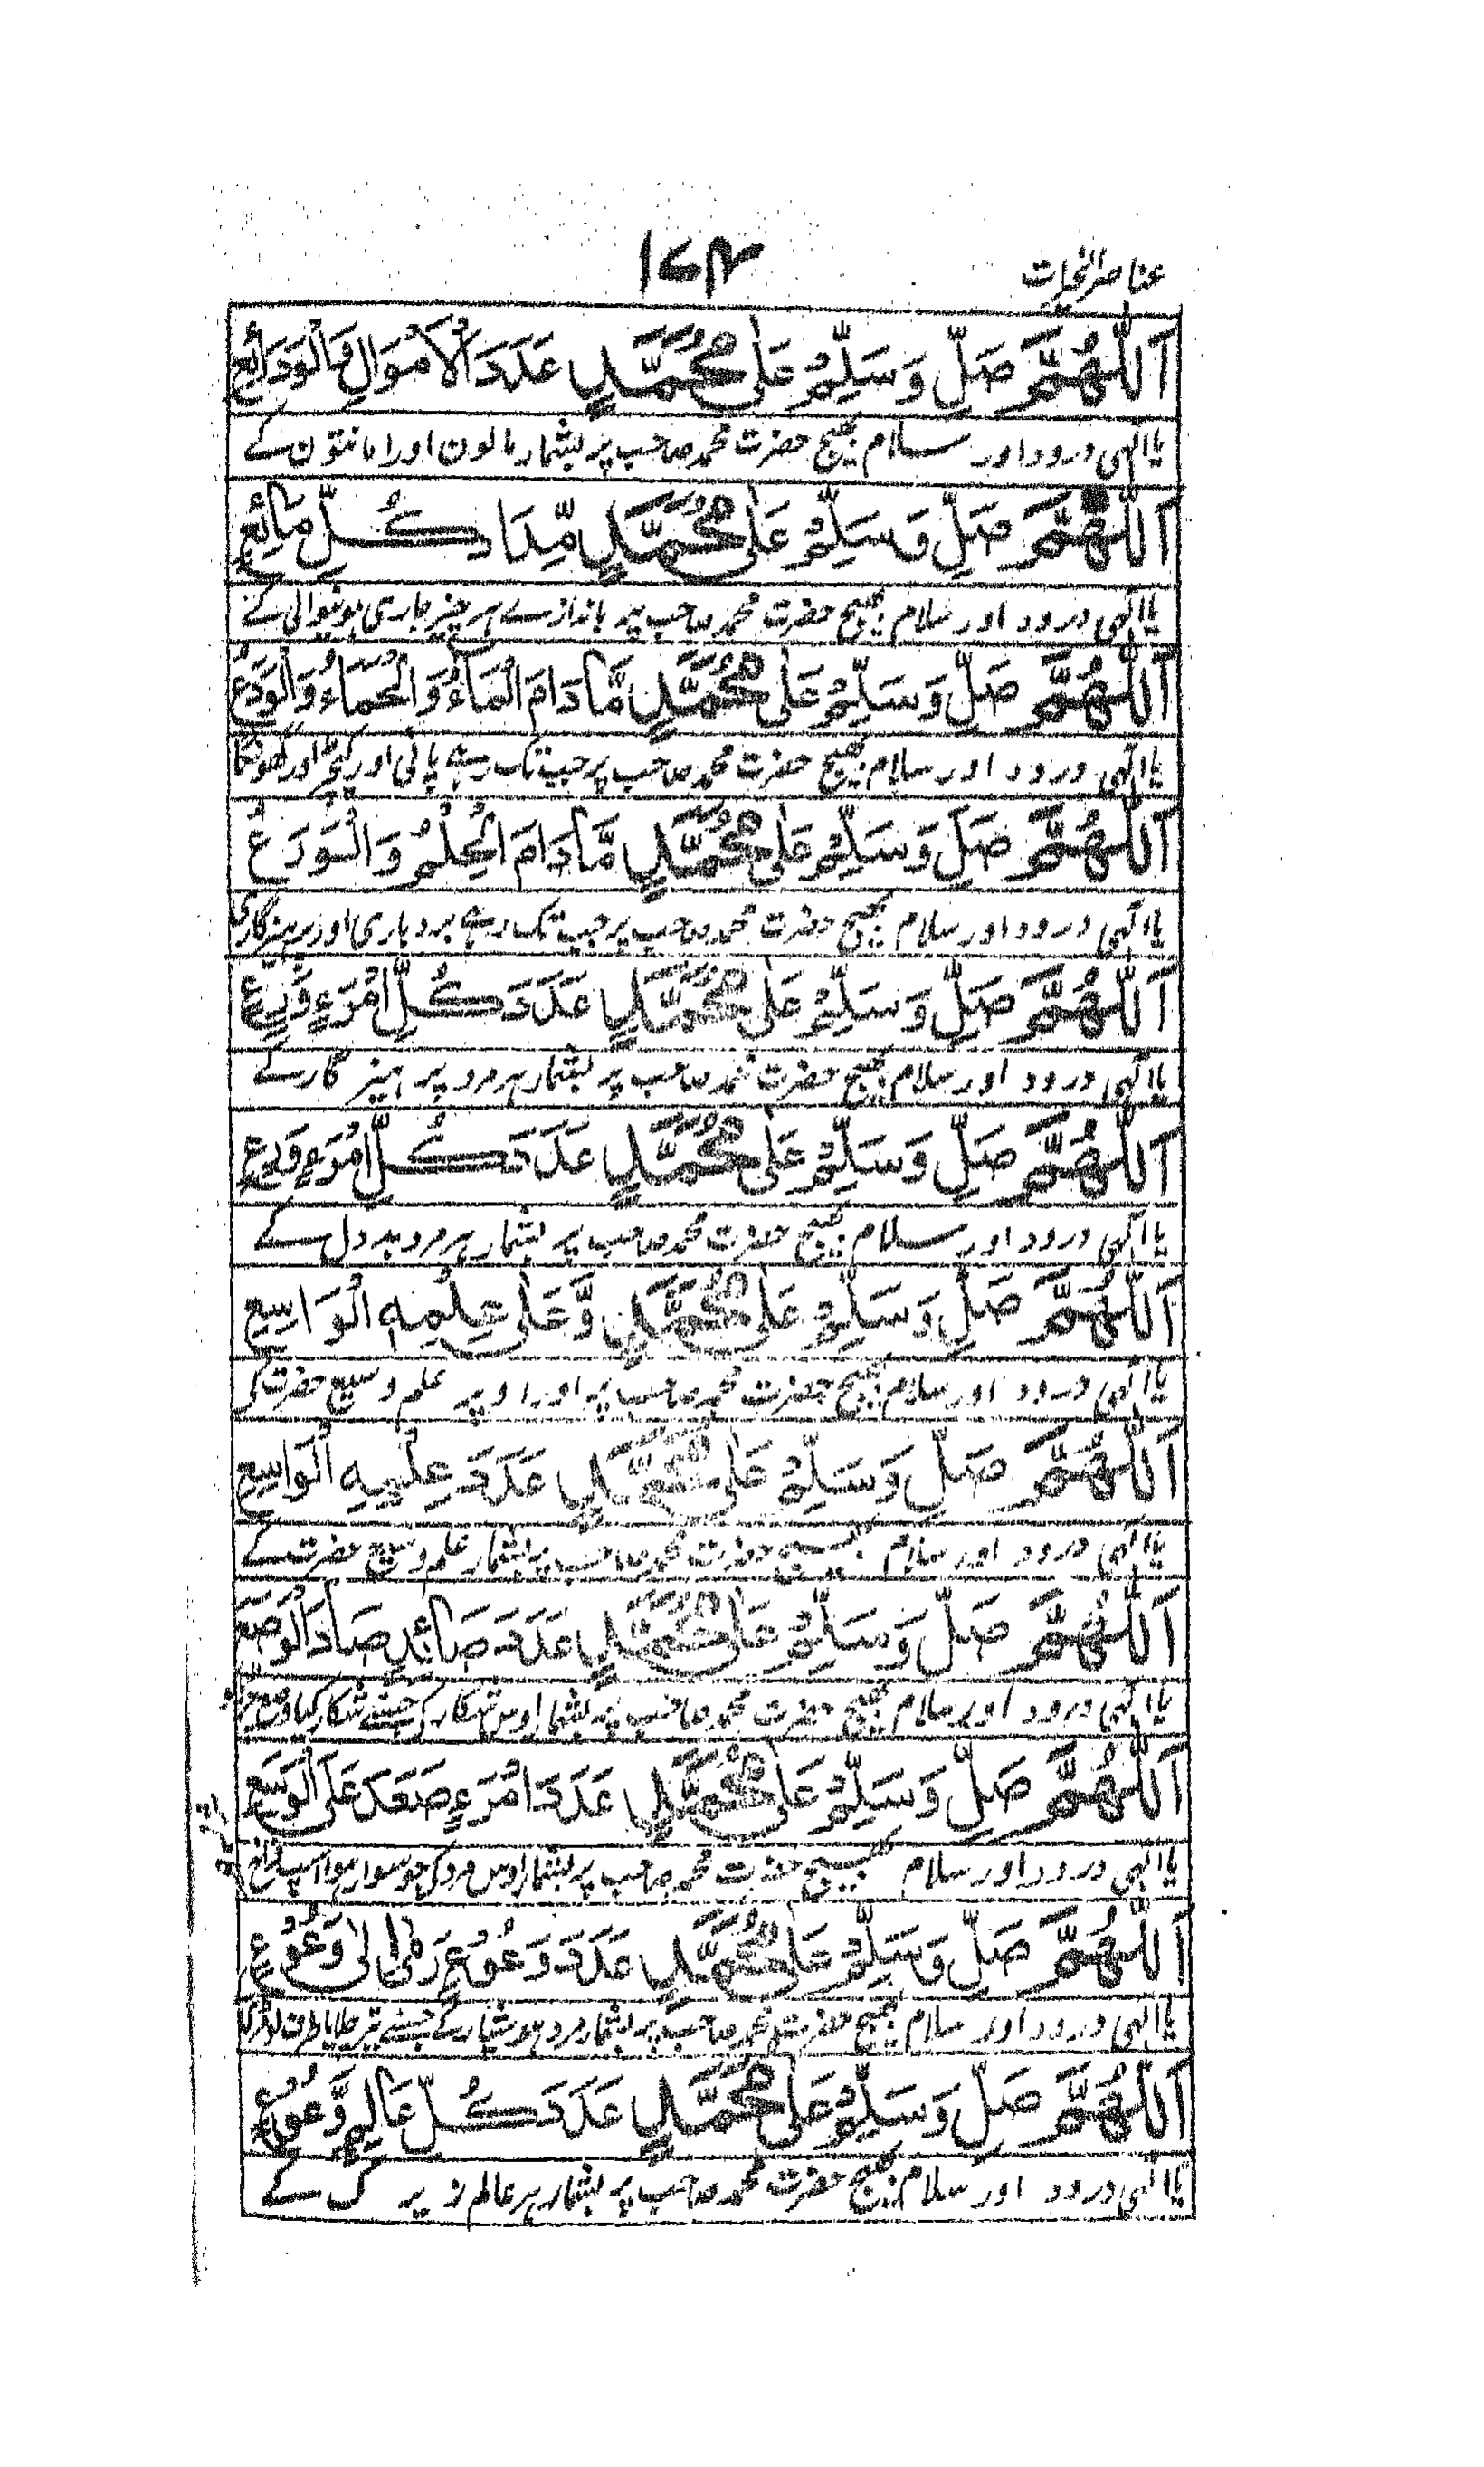 عناصر الخیرات
۱۷۴
اَللّٰهُمَّ صَلِّ وَسَلِّمْ عَلٰى مُحَمَّدٍ عَدَدَ الْاَمْوَالِ وَالْوَدَائِعِ
یا الٰہی درود اور سلام بھیج حضرت محمد صاحب پر بشمار مالون اور امانتون کے
اَللّٰهُمَّ صَلِّ وَسَلِّمْ عَلٰى مُحَمَّدٍ مِّدَادَ كُلِّ مَائِعٍ
یا الٰہی درود اور سلام بھیج حضرت محمد صاحب پر باندازے ہر چیز جاری ہونیوالی کے
اَللّٰهُمَّ صَلِّ وَسَلِّمْ عَلٰى مُحَمَّدٍ مَّا دَامَ الْمَاءُ وَالْحَمَاءُ وَالْوَدَعُ
یا الٰہی درود اور سلام بھیج حضرت محمد صاحب پر جب تک رہے پانی اور کیچڑ اور گھونگا
اَللّٰهُمَّ صَلِّ وَسَلِّمْ عَلٰى مُحَمَّدٍ مَّا دَامَ الْحِلْمُ وَالْوَرَعُ
یا الٰہی درود اور سلام بھیج حضرت محمد صاحب پر جب تک رہے بردباری اور پرہیزگاری
اَللّٰهُمَّ صَلِّ وَسَلِّمْ عَلٰى مُحَمَّدٍ عَدَدَ كُلِّ امْرَءٍ وَّرِعٍ
یا الٰہی درود اور سلام بھیج حضرت محمد صاحب پر بشمار ہر مرد پرہیز گار کے
اَللّٰهُمَّ صَلِّ وَسَلِّمْ عَلٰى مُحَمَّدٍ عَدَدَ كُلِّ امْرَءٍ وَرَعٍ
یا الٰہی درود اور سلام بھیج حضرت محمد صاحب پر بشمار ہر مرد بد دل کے
اَللّٰهُمَّ صَلِّ وَسَلِّمْ عَلٰى مُحَمَّدٍ وَّعَلٰى عِلْمِهِ الْوَاسِعِ
یا الٰہی درود اور سلام بھیج حضرت محمد صاحب پر اور اوپر علم وسیع حضرت کی
اَللّٰهُمَّ صَلِّ وَسَلِّمْ عَلٰى مُحَمَّدٍ عَدَدَ عِلْمِهِ الْوَاسِعِ
یا الٰہی درود اور سلام بھیج حضرت محمد صاحب پر بشمار علم وسیع حضرت کے
اَللّٰهُمَّ صَلِّ وَسَلِّمْ عَلٰى مُحَمَّدٍ عَدَدَ صَائِدٍ صَادَ الْوَصَعَ
یا الٰہی درود اور سلام بھیج حضرت محمد صاحب پر بشمار اوس شکار کی جسنے شکار کیا وصع
اَللّٰهُمَّ صَلِّ وَسَلِّمْ عَلٰى مُحَمَّدٍ عَدَدَ امْرَءٍ صَعَدَ عَلَى الْوَسِيْعِ
یا الٰہی درود اور سلام بھیج حضرت محمد صاحب پر بشمار اوس مرد کی جو سوار ہوا اسپ فراخ
اَللّٰهُمَّ صَلِّ وَسَلِّمْ عَلٰى مُحَمَّدٍ عَدَدَ وَعْوَعٍ رَمٰى اِلٰى وَعْوَعٍ
یا الٰہی درود اور سلام بھیج حضرت محمد صاحب پر بشمار مرد ہوشیار کے جسنے تیر چلایا طرف
اَللّٰهُمَّ صَلِّ وَسَلِّمْ عَلٰى مُحَمَّدٍ عَدَدَ كُلِّ عَالِمٍ وَّعْوَعٍ
یا الٰہی درود اور سلام بھیج حضرت محمد صاحب پر بشمار ہر عالم زیرک کے